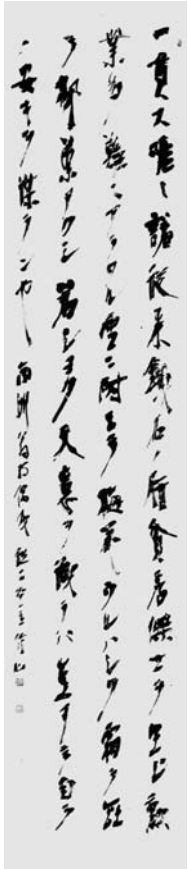 一貫ス唯々諾従来鐵石ノ肝貧居傑士ヲ生ジ勲
業多ノ難ニアラハル雪ニ耐エテ梅花ウルハシク霜ヲ経
テ楓葉アカシ若シヨク天意ヲ識ラバ豈アエテ自ラ
ノ安キヲ謀ランヤ 南洲翁